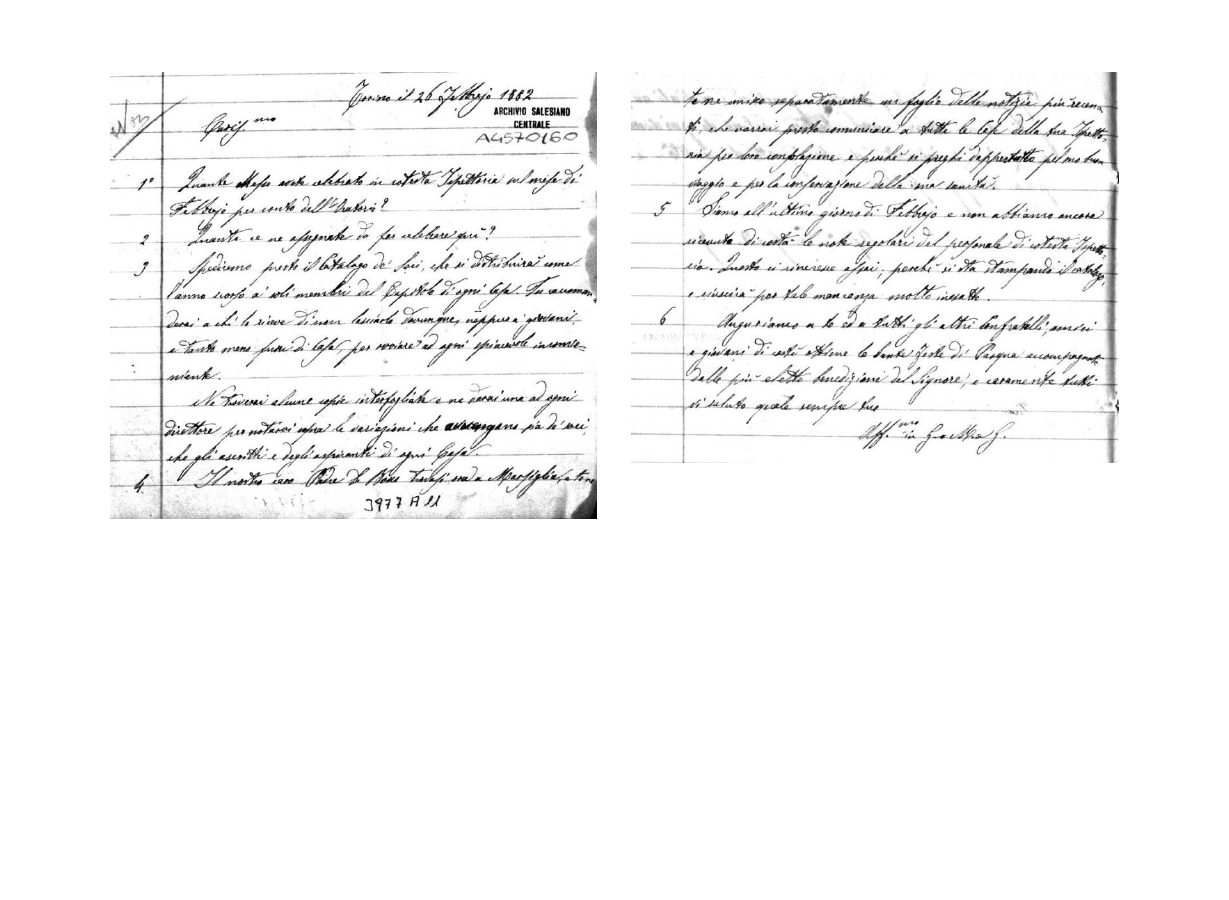 Torino il 26 Febbrajo 1882
ARCHIVIO SALESIANO
CENTRALE
A4570160
Caris.mo
1° Quante Messe avete celebrato in cotesta Ispettoria nel mese di
Febbrajo per conto dell'Oratorio?
2 Quante ce ne assegnate da far celebrare qui?
3 Spediremo presto il Catalogo de' Soci, che si distribuirà come
l'anno scorso ai soli membri del Capitolo di ogni Casa. Tu raccoman
derai a chi lo riceve di non lasciarlo dovunque, neppure a giovani,
e tanto meno fuori di Casa, per ovviare ad ogni spiacevole inconve=
niente.
Ne troverai alcune copie interfogliate e ne darai una ad ogni
direttore per notarvi sopra le variazioni che avvengano sia de' soci,
che gli ascritti e degli aspiranti di ogni Casa.
4 Il nostro caro Padre D. Bosco trovasi ora a Marsiglia, e te ne
3977 A 11
to ne unisco separatamente un foglio delle notizie più recen=
ti, che vorrai presto comunicare a tutte le Case della tua Ispetto=
ria per loro consolazione e perchè si preghi dappertutto pel suo buon
viaggio e per la conservazione della sua sanità.
5 Siamo all'ultimo giorno di Febbrajo e non abbiamo ancora
ricevuto di costà le note regolari del personale di cotesta Ispetto=
ria. Questo ci rincresce assai, perchè si sta stampando il catalogo,
e riuscirà per tale mancanza molto inesatto.
6 Auguriamo a te ed a tutti gli altri Confratelli, amici
e giovani di costì ottime le Sante Feste di Pasqua accompagnate
dalle più elette benedizioni del Signore, e caramente tutti
vi saluto quale sempre tuo
Aff.mo in G. e M. G.